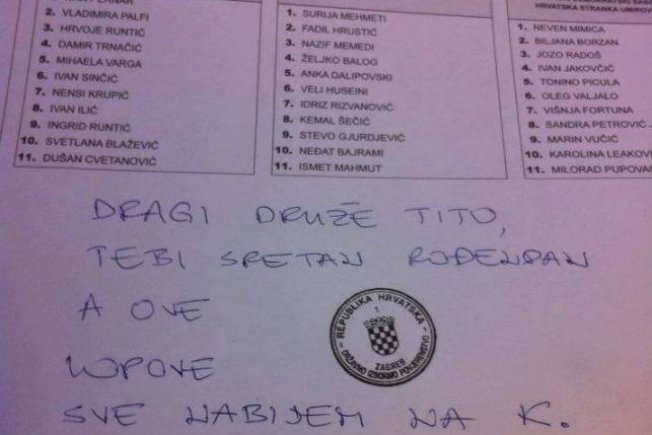 2. VLADIMIRA PALFI
3. HRVOJE RUNTIĆ
4. DAMIR TRNAČIĆ
5. MIHAELA VARGA
6. IVAN SINČIĆ
7. NENSI KRUPIĆ
8. IVAN ILIĆ
9. INGRID RUNTIĆ
10. SVETLANA BLAŽEVIĆ
11. DUŠAN CVETANOVIĆ
1. SURIJA MEHMETI
2. FADIL HRUSTIĆ
3. NAZIF MEMEDI
4. ŽELJKO BALOG
5. ANKA DALIPOVSKI
6. VELI HUSEINI
7. IDRIZ RIZVANOVIĆ
8. KEMAL ŠEČIĆ
9. STEVO GJURDJEVIĆ
10. NEĐAT BAJRAMI
11. ISMET MAHMUT
HRVATSKA STRANKA UMIROV
1. NEVEN MIMICA
2. BILJANA BORZAN
3. JOZO RADOŠ
4. IVAN JAKOVČIĆ
5. TONINO PICULA
6. OLEG VALJALO
7. VIŠNJA FORTUNA
8. SANDRA PETROVIĆ J
9. MARIN VUČIĆ
10. KAROLINA LEAKOVI
11. MILORAD PUPOVA
DRAGI DRUŽE TITO,
TEBI SRETAN ROĐENDAN
A OVE
LOPOVE
SVE NABIJEM NA K.
REPUBLIKA HRVATSKA
1
ZAGREB
DRŽAVNO IZBORNO POVJERENSTVO